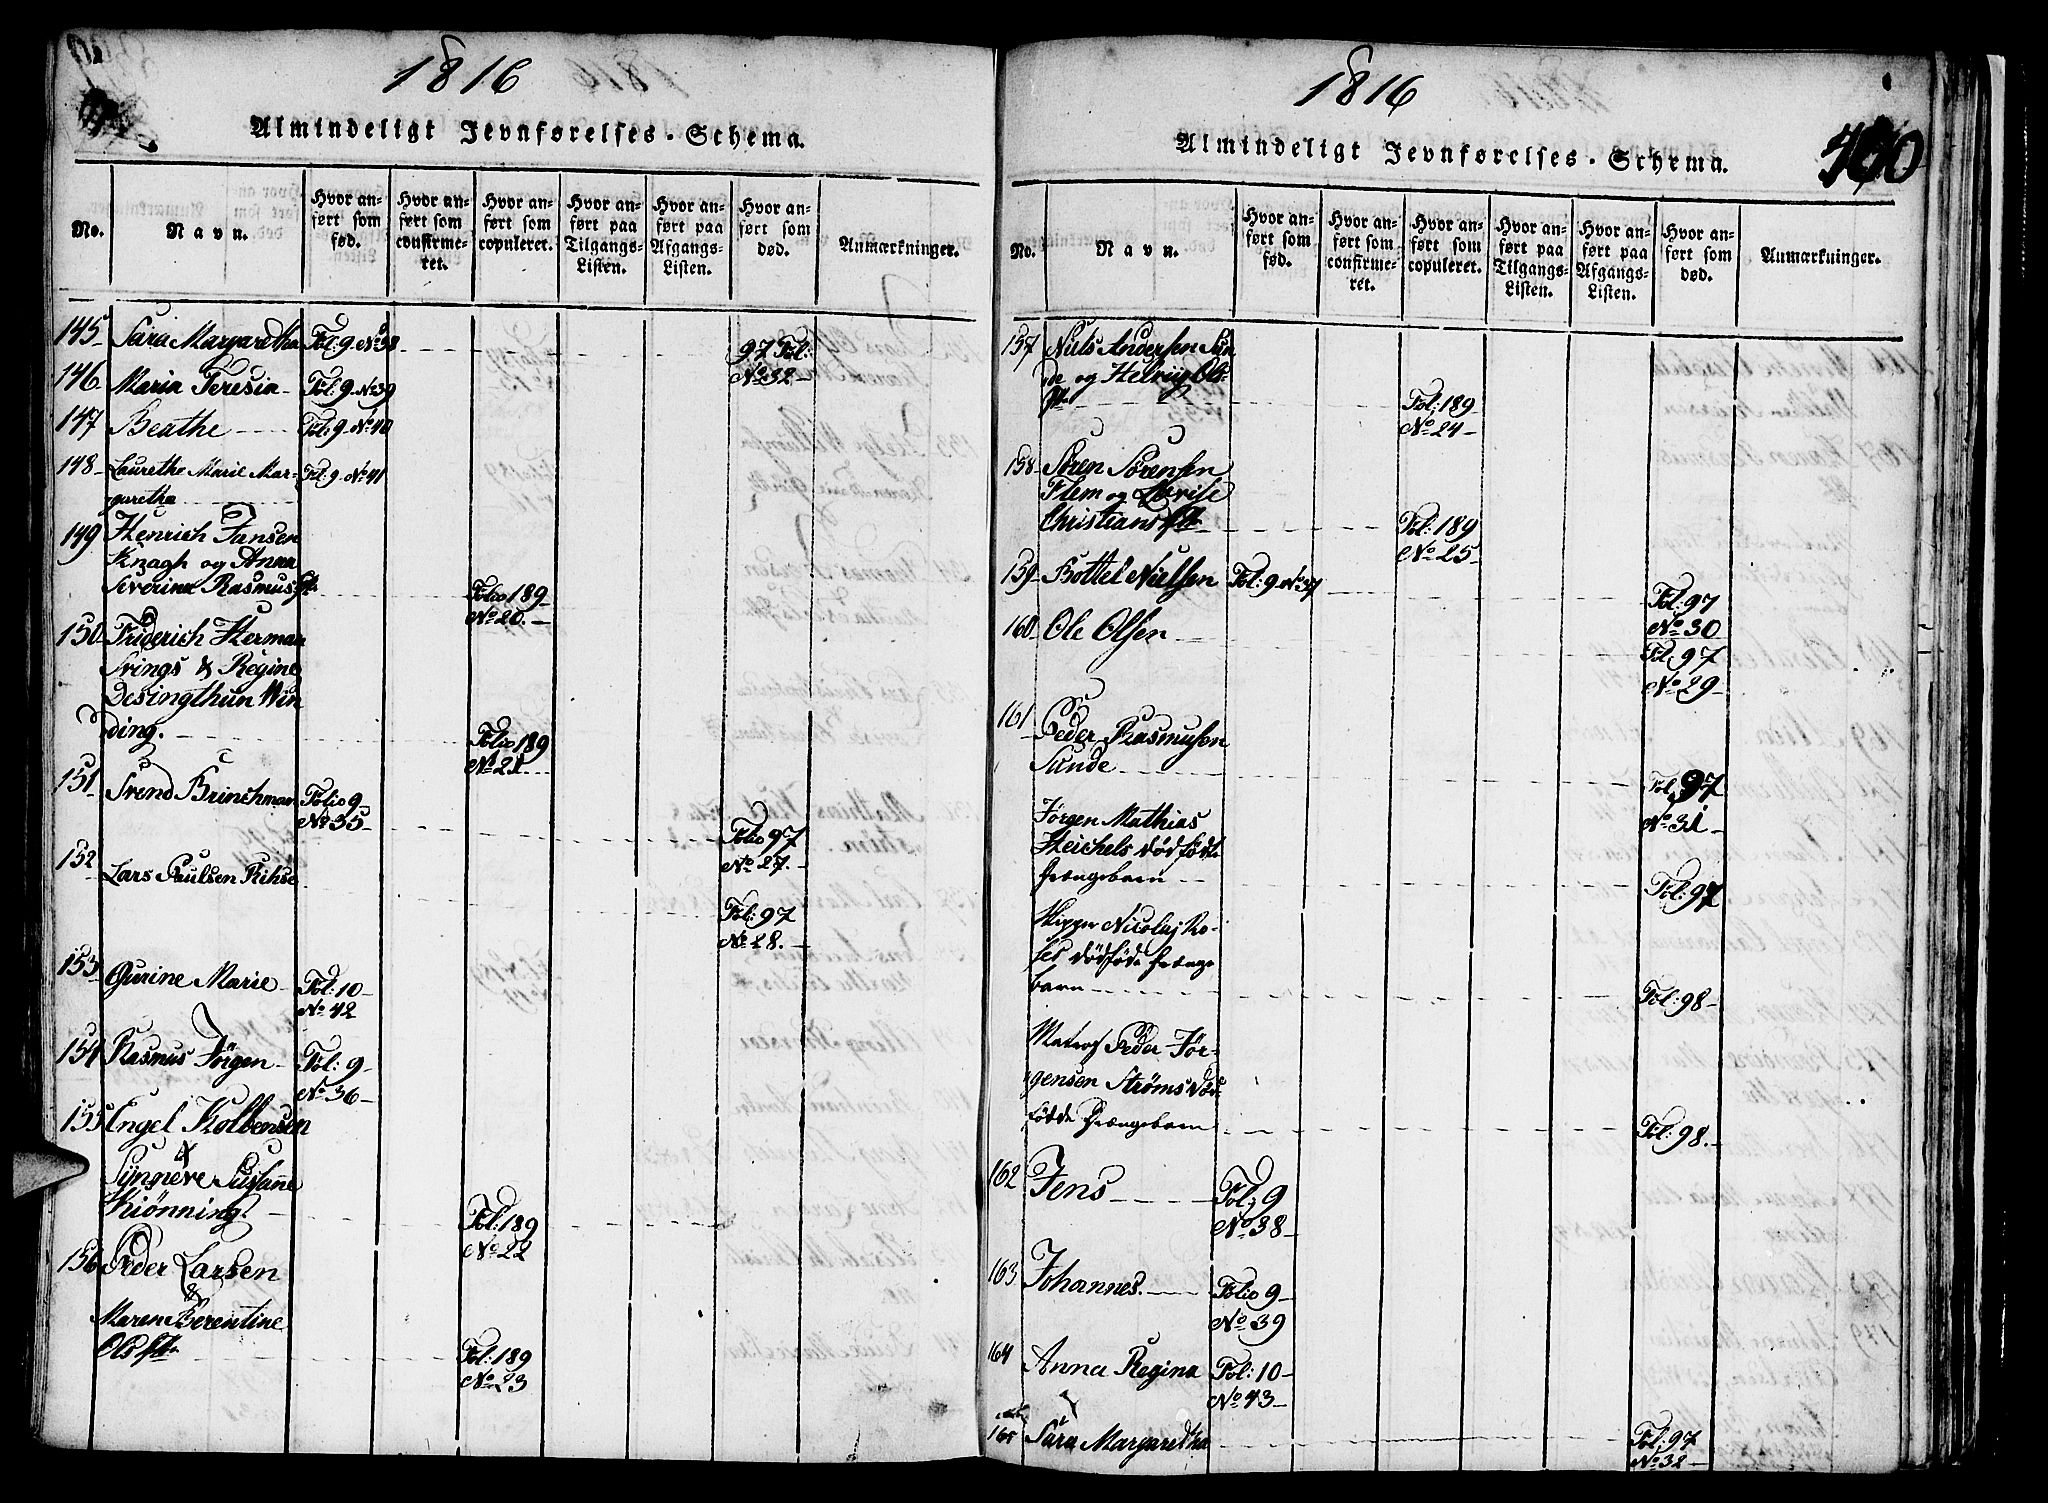 1816
Almindeligt Jevnførelses-Schema.
No.
Navn.
Hvor anført som fød.
Hvor anført som confirmeret.
Hvor anført som copuleret.
Hvor anført paa Tilgangs-Listen.
Hvor anført paa Afgangs-Listen.
Hvor anført som død.
Anmærkninger.
145 Sara Margaretha Fol: 9 No 38 97 Fol:
No 32
146 Maria Teresia Fol: 9 No 39
147 Beathe Fol: 9 No 40
148 Laurethe Marie Mar- Fol: 9 No 41
garetha
149 Henrich Jansen
Kragh og Anna
Severina Rasmus Folio 189
No 20.
150 Friderich Herman
Srings & Regine
Desingthun Win
ding. Folio 189
No 21
151 Svend Brinchman Folio 9
No 35 Folio 97
No 27.
152 Lars Paulsen Fol: 97
No 28.
153 Gurine Marie Fol: 10
No 42
154 Rasmus Jörgen Fol: 9
No 36
155 Engel Kolbensen
&
Synneve Susane
Kiönning Fol: 189
No 22
156 Peder Larsen
&
Maren Berentine
Fol: 189
No 23
1816
400
Almindeligt Jevnførelses-Schema.
No.
Navn.
Hvor anført som fød.
Hvor anført som confirmeret.
Hvor anført som copuleret.
Hvor anført paa Tilgangs-Listen.
Hvor anført paa Afgangs-Listen.
Hvor anført som død.
Anmærkninger.
157 Niels Andersen Sun
de og Helvig Ols
Fol: 189
No 24
158 Sören Sörensen
Flem og Lovise
Christians Fol: 189
No 25
159 Bottel Nielsen Fol: 9 No 37 Fol: 97
No 30
160 Ole Olsen Fol: 97
No 29
161 Peder Rasmusen
Sunde Fol 97
No 31
Jørgen Mathias
Heichels dødfödte
Drængebarn Fol: 97
Skipper Nicolaj Ro-
ses dödföde Drænge
barn Fol: 98
Matros Peder Jör-
gensen Ströms död
födde Drængebarn Fol: 98.
162 Jens Fol: 9
No 38
163 Johannes. Folio 9
No 39
164 Anna Regina Fol: 10
No 43
165 Sara Margaretha Fol: 97
No 32